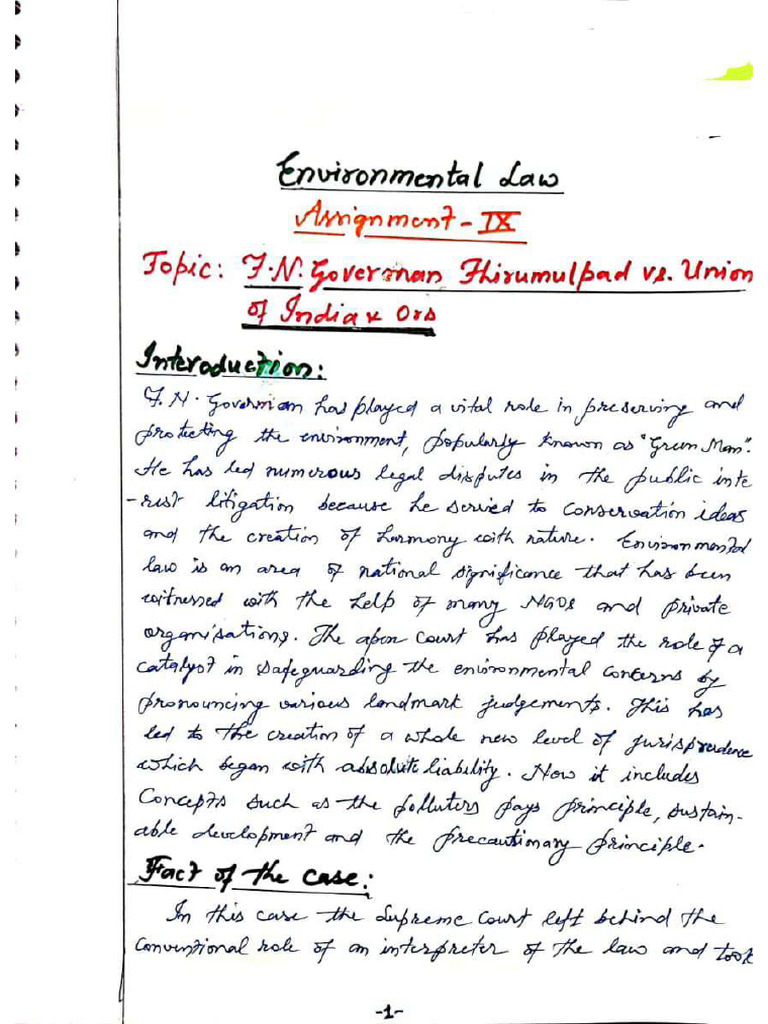 Environmental Law
Assignment - IX
Topic: T.N. Goverman Thirumulpad vs. Union
of India & Ors
Interoduction:
T.N. Goverman has played a vital role in preserving and
protecting the environment, popularly known as "Green Man".
He has led numerous legal disputes in the public inte
-rest litigation because he serived to conservation ideas
and the creation of harmony with nature. Environmental
law is an area of national significance that has been
witnessed with the help of many NGOs and private
organisations. The apex Court has played the role of a
catalyst in safeguarding the environmental concerns by
pronouncing various landmark judgements. This has
led to the creation of a whole new level of jurisprudence
which began with absolute liability. Now it includes
Concepts such as the polluters pays principle, sustain-
able development and the precautionary principle.
Fact of the case:
In this case the Supreme Court left behind the
conventional role of an interpreter of the law and took
-1-